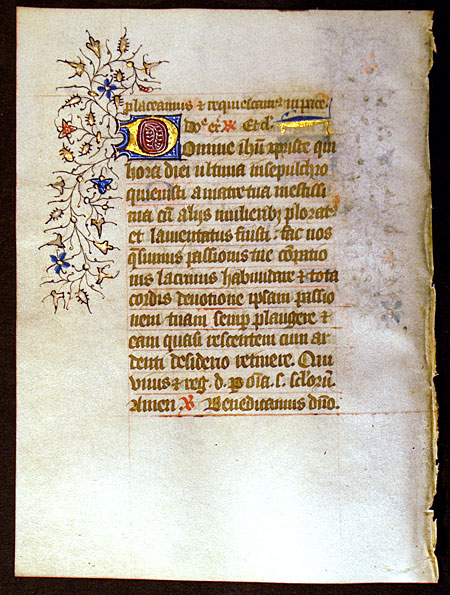 placeamus & requiescamꝰ in pace
Dn̄e ex. ℟ Et cl.
Domine ihū xpriste qui
hora diei ultima in sepulchro
quieuisti a matre tua mestissi
ma cū alijs mulieribꝰ ploratꝰ
et lamentatus fuisti. fac nos
q̄sumus passionis tue cōpatio
nis lacrimis habundare & tota
cordis deuotione ipsam passio
nem tuam semꝑ plangere &
eam quasi rescentem cum ar
denti desiderio retinere. Qui
viuis & reg. d. ꝑ oīa. s. sclorū.
Amen. ℟ Benedicamus dn̄o.